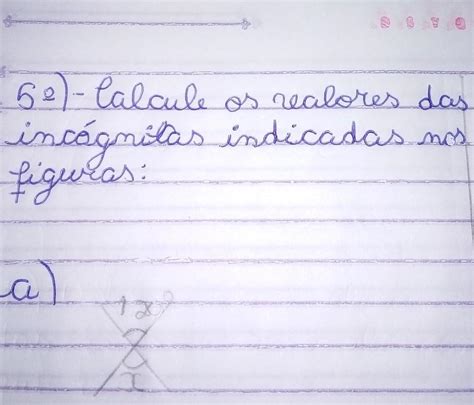 5º)- Calcule os realores das
incógnitas indicadas nos
figuras:
a)
x